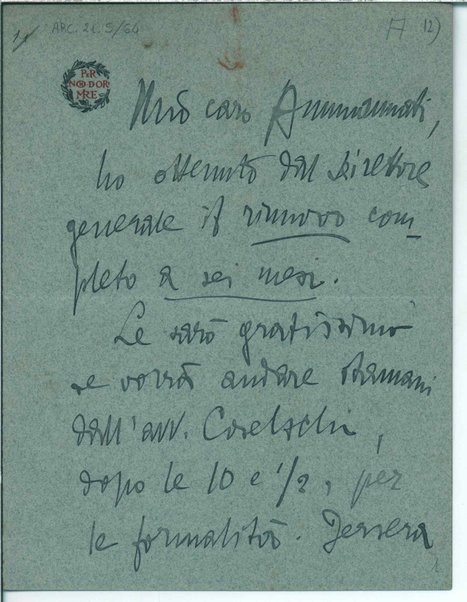 ARC. 21. 5/64
A 12)
PER
NON DOR
MIRE
Mio caro Ammannati,
ho ottenuto dal Direttore
generale il rinnovo com-
pleto a sei mesi.
Le sarò gratissimo
se vorrà andare stamani
dall'avv. Coselschi,
dopo le 10 e 1/2, per
le formalità. Iersera